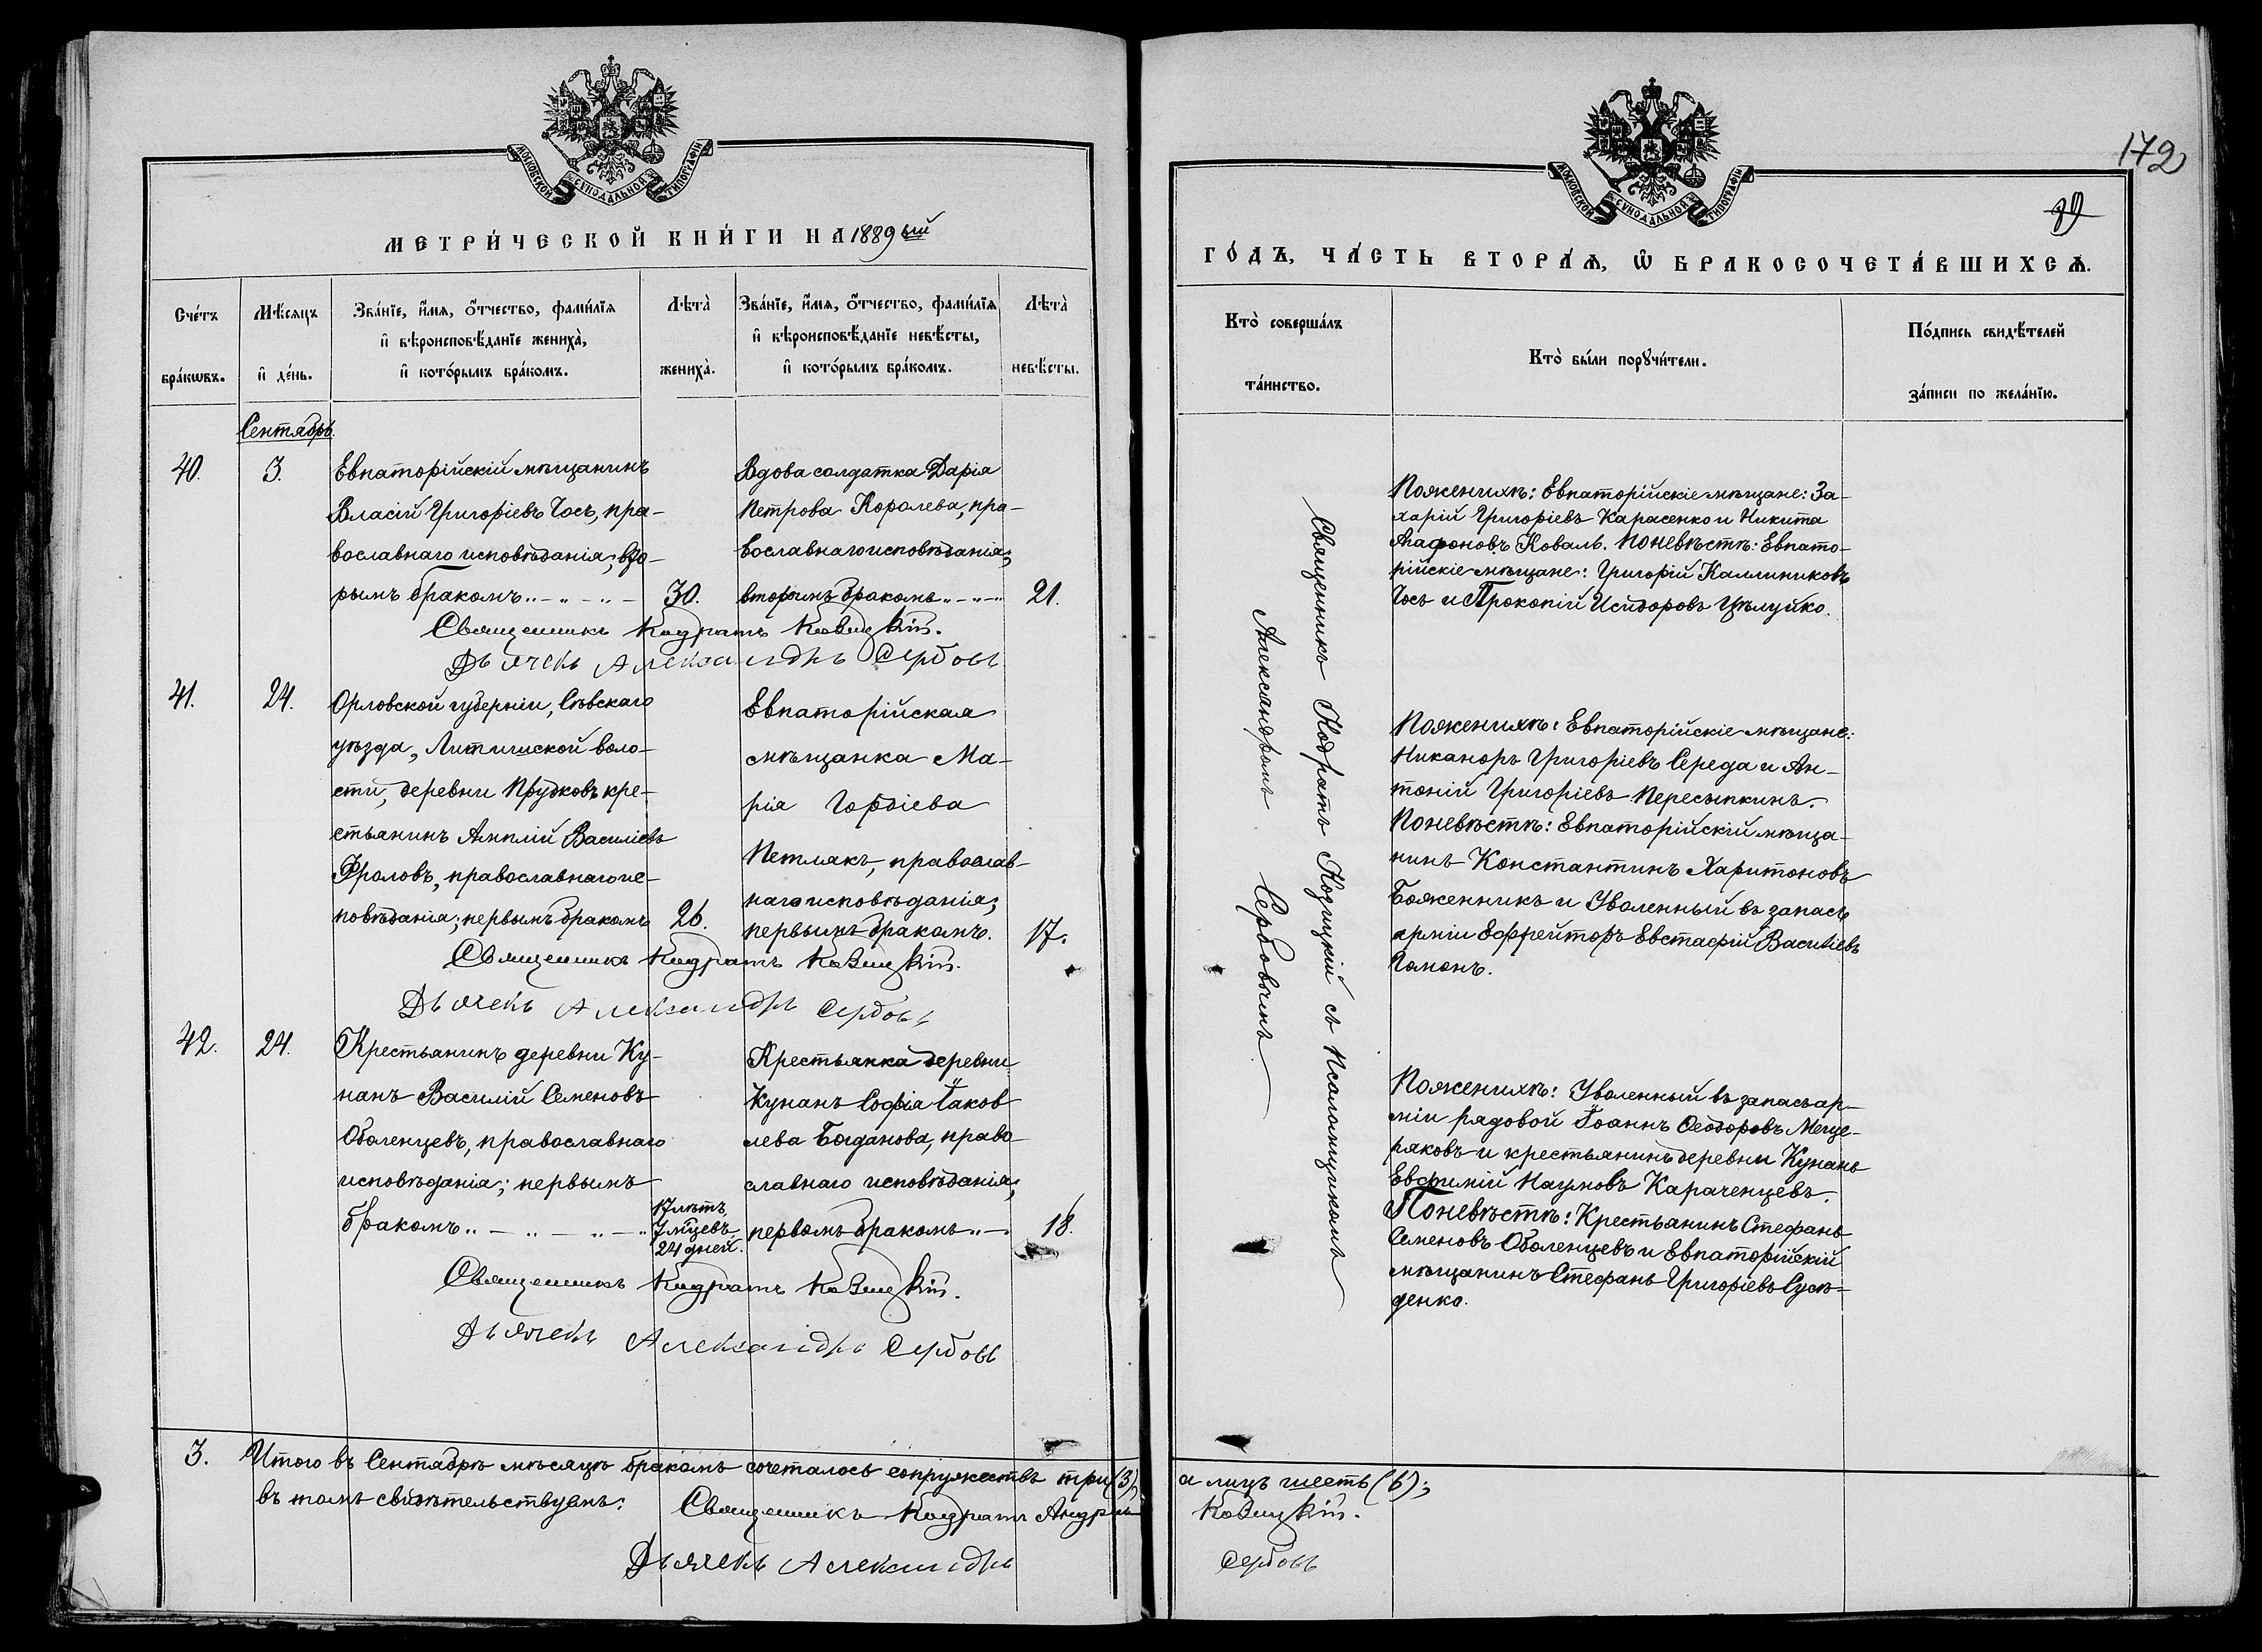 МОСКОВСКОЙ СѴНОДАЛЬНОЙ ТИПОГРАФІИ
МЕТРИ́ЧЕСКОЙ КНИ́ГИ НА 1889ый
Сче́тъ бра́кѡвъ.
Мѣ́сяцъ и҆ де́нь.
Зва́нїе, и҆́мѧ, ѻ҆́тчество, фами́лїѧ
и҆ вѣроисповѣ́данїе жениха̀,
и҆ кото́рымъ бра́комъ.
Лѣта̀ жениха̀.
Зва́нїе, и҆́мѧ, ѻ҆́тчество, фами́лїѧ
и҆ вѣроисповѣ́данїе невѣ́сты,
и҆ кото́рымъ бра́комъ.
Лѣта̀ невѣ́сты.
Сентябрь.
40.
3.
Евпаторійскій мѣщанинъ
Власій Григоріевъ Гось, пра-
вославнаго исповѣданія; вто-
рымъ бракомъ
30.
Вдова солдатка Дарія
Петрова Королева, пра-
вославнаго исповѣданія;
вторымъ бракомъ
21.
Священникъ Кодратъ Козицкій.
Дьячекъ Александръ Сербовъ
41.
24.
Орловской губерніи, Сѣвскаго
уѣзда, Литижской воло-
сти, деревни Прудковъ кре-
стьянинъ Амплій Василіевъ
Фроловъ, православнаго ис-
повѣданія; первымъ бракомъ
26.
Евпаторійская
мѣщанка Ма-
рія Гордіева
Петлякъ, православ-
наго исповѣданія;
первымъ бракомъ.
17.
Священникъ Кодратъ Козицкій.
Дьячекъ Александръ Сербовъ
42.
24.
Крестьянинъ деревни Ку-
нанъ Василій Семеновъ
Оболенцевъ, православнаго
исповѣданія; первымъ
бракомъ
17 лѣтъ,
7 мѣцевъ
24 дней.
Крестьянка деревни
Кунанъ Софія Іаков-
лева Богданова, право-
славнаго исповѣданія;
первомъ бракомъ
18.
Священникъ Кодратъ Козицкій.
Дьячекъ Александръ Сербовъ
3.
Итого въ Сентябрѣ мѣсяцѣ бракомъ сочеталось супружествъ три (3),
въ томъ свидѣтельствуемъ:
Священникъ Кодратъ Андреевъ
Дьячекъ Александръ
172
89
МОСКОВСКОЙ СѴНОДАЛЬНОЙ ТИПОГРАФІИ
ГО́ДЪ, ЧА́СТЬ ВТОРА́Ѧ, Ѡ҆ БРАКОСОЧЕТА́ВШИХСѦ.
Кто̀ соверша́лъ
та́инство.
Кто̀ бы́ли порꙋчи́тели.
По́дпись свидѣ́телей
за́писи по жела́нїю.
Священникъ Кодратъ Козицкій съ Псаломщикомъ
Александромъ Сербовымъ
По женихѣ: Евпаторійскіе мѣщане: За-
харій Григоріевъ Карасенко и Никита
Агафоновъ Коваль. По невѣстѣ: Евпато-
рійскіе мѣщане: Григорій Каллиниковъ
Гось и Прокопій Исидоровъ Цѣлуйко.
По женихѣ: Евпаторійскіе мѣщане:
Никаноръ Григоріевъ Середа и Ан-
тоній Григоріевъ Пересыпкинъ.
По невѣстѣ: Евпаторійскій мѣща-
нинъ Константинъ Харитоновъ
Боженникъ и Уволенный въ запасъ
арміи Ефрейторъ Евстафій Василіевъ
Гомонъ.
По женихѣ: Уволенный въ запасъ ар-
міи рядовой Іоаннъ Ѳеодоровъ Меще-
ряковъ и крестьянинъ деревни Кунанъ
Евфимій Наумовъ Караченцевъ.
По невѣстѣ: Крестьянинъ Стефанъ
Семеновъ Оболенцевъ и Евпаторійскій
мѣщанинъ Стефанъ Григоріевъ Сусѣ-
денко.
а лицъ шесть (6);
Козицкій.
Сербовъ